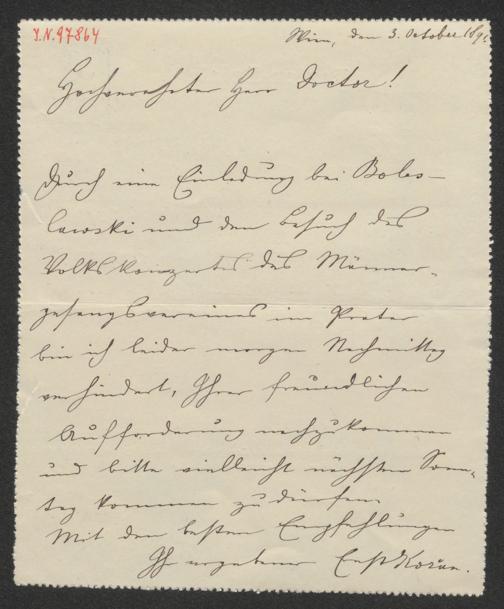 I.N. 97864
Wien, den 3. October 189
Hochverehrter Herr Doctor!
Durch eine Einladung bei Boles-
lawski und den Besuch des
Volkskonzertes des Männer-
gesangsvereines im Prater
bin ich leider morgen Nachmittag
verhindert, Ihrer freundlichen
Aufforderung nachzukommen
und bitte vielleicht nächsten Sonn-
tag kommen zu dürfen.
Mit den besten Empfehlungen
Ihr ergebener